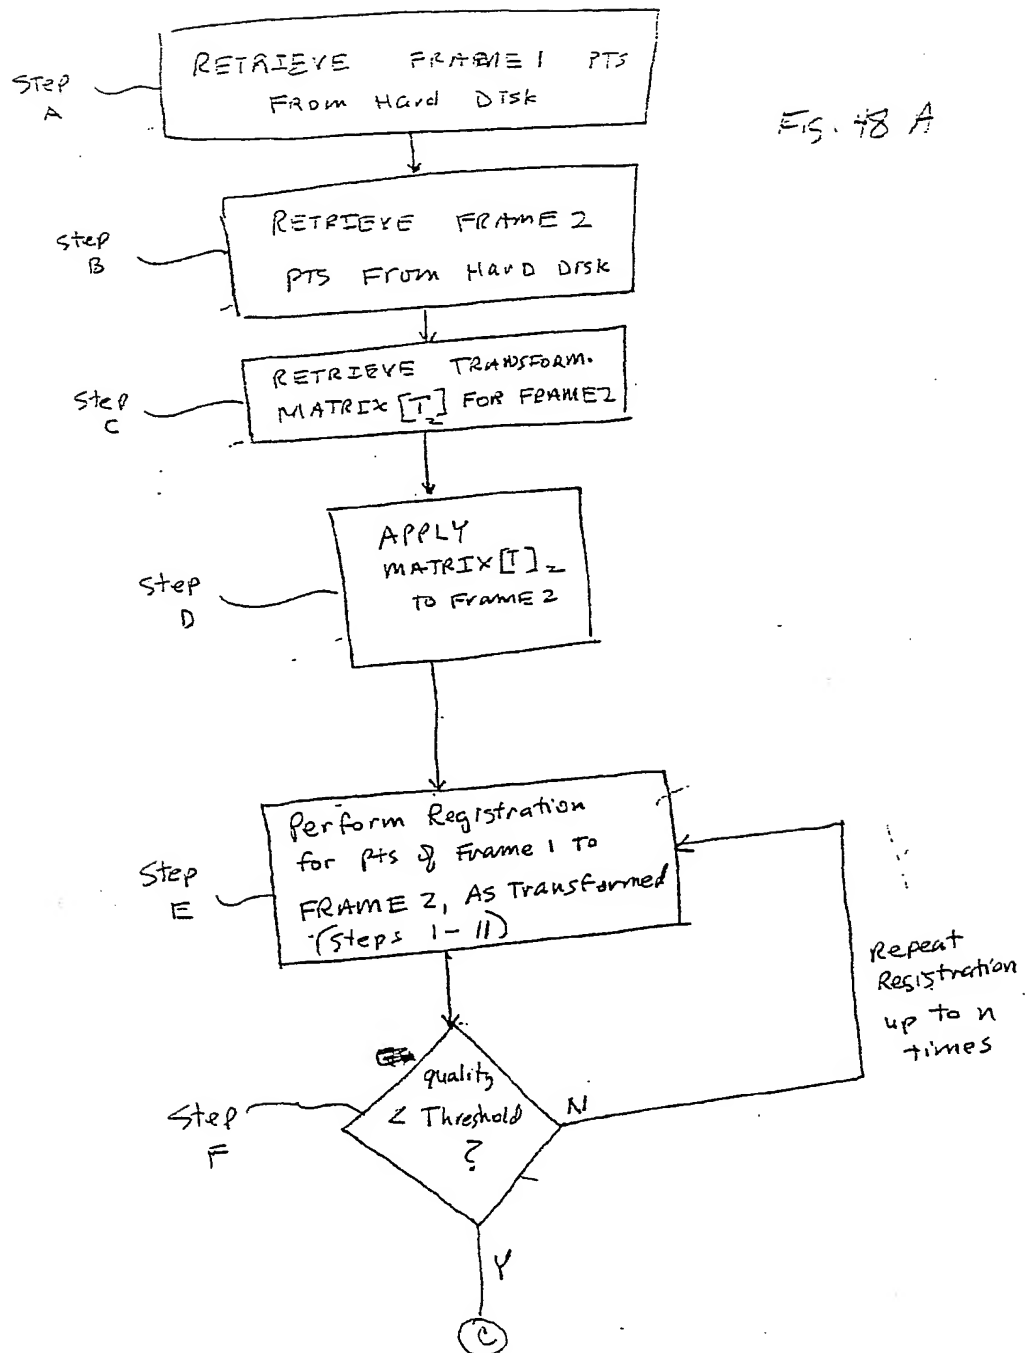 Fig. 48 A
Step
A
RETRIEVE FRAME 1 PTS
FROM Hard DISK
Step
B
RETRIEVE FRAME 2
PTS From HarD Disk
Step
C
RETRIEVE TRANSFORM.
MATRIX [T2] FOR FRAME 2
Step
D
APPLY
MATRIX [T]2
TO Frame 2
Step
E
Perform Registration
for pts of Frame 1 To
FRAME 2, As Transformed
(Steps 1-11)
Repeat
Registration
up to n
times
Step
F
quality
< Threshold
?
N
Y
C